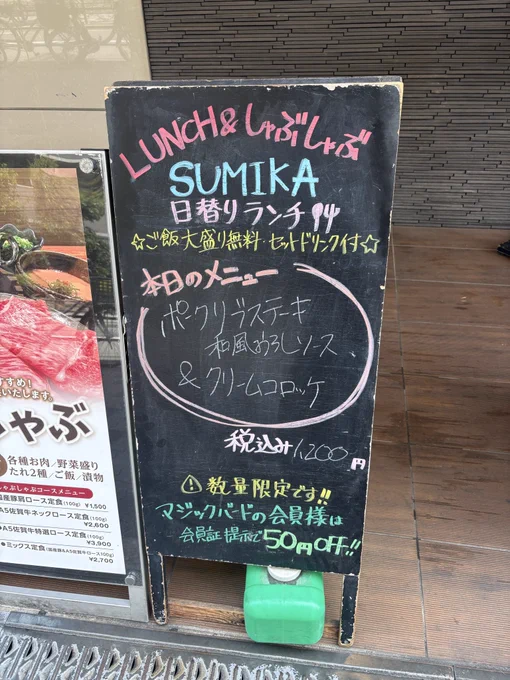 LUNCH & しゃぶしゃぶ
SUMIKA
日替りランチ
☆ご飯大盛り無料・セットドリンク付☆
本日のメニュー
ポークリブステーキ
和風おろしソース
& クリームコロッケ
税込み 1,200円
数量限定です!!
マジックバードの会員様は
会員証提示で50円OFF!!
すすめ!
いたします。
しゃぶ
各種お肉/野菜盛り
たれ2種/ご飯/漬物
しゃぶしゃぶコースメニュー
国産豚肩ロース定食(100g)
¥1,500
A5佐賀牛ネックロース定食(100g)
¥2,600
A5佐賀牛特選ロース定食(100g)
¥3,900
ミックス定食(国産豚&A5佐賀牛ロース100g)
¥2,700